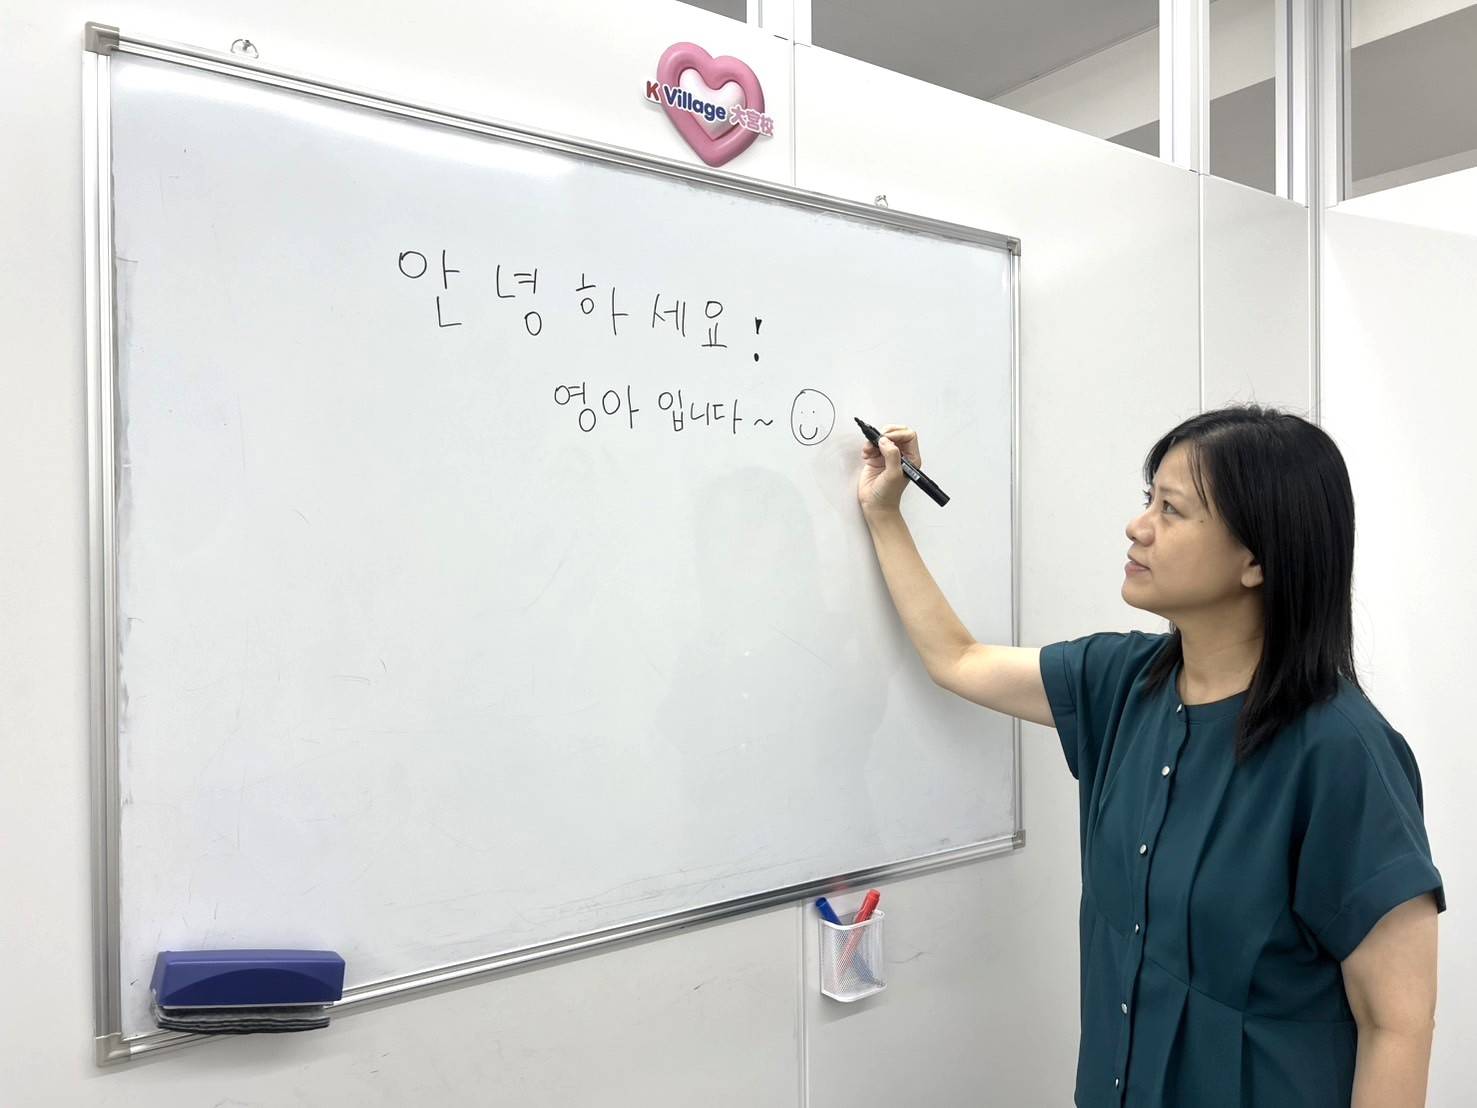 K Village 大宮校
안녕하세요!
영아 입니다~